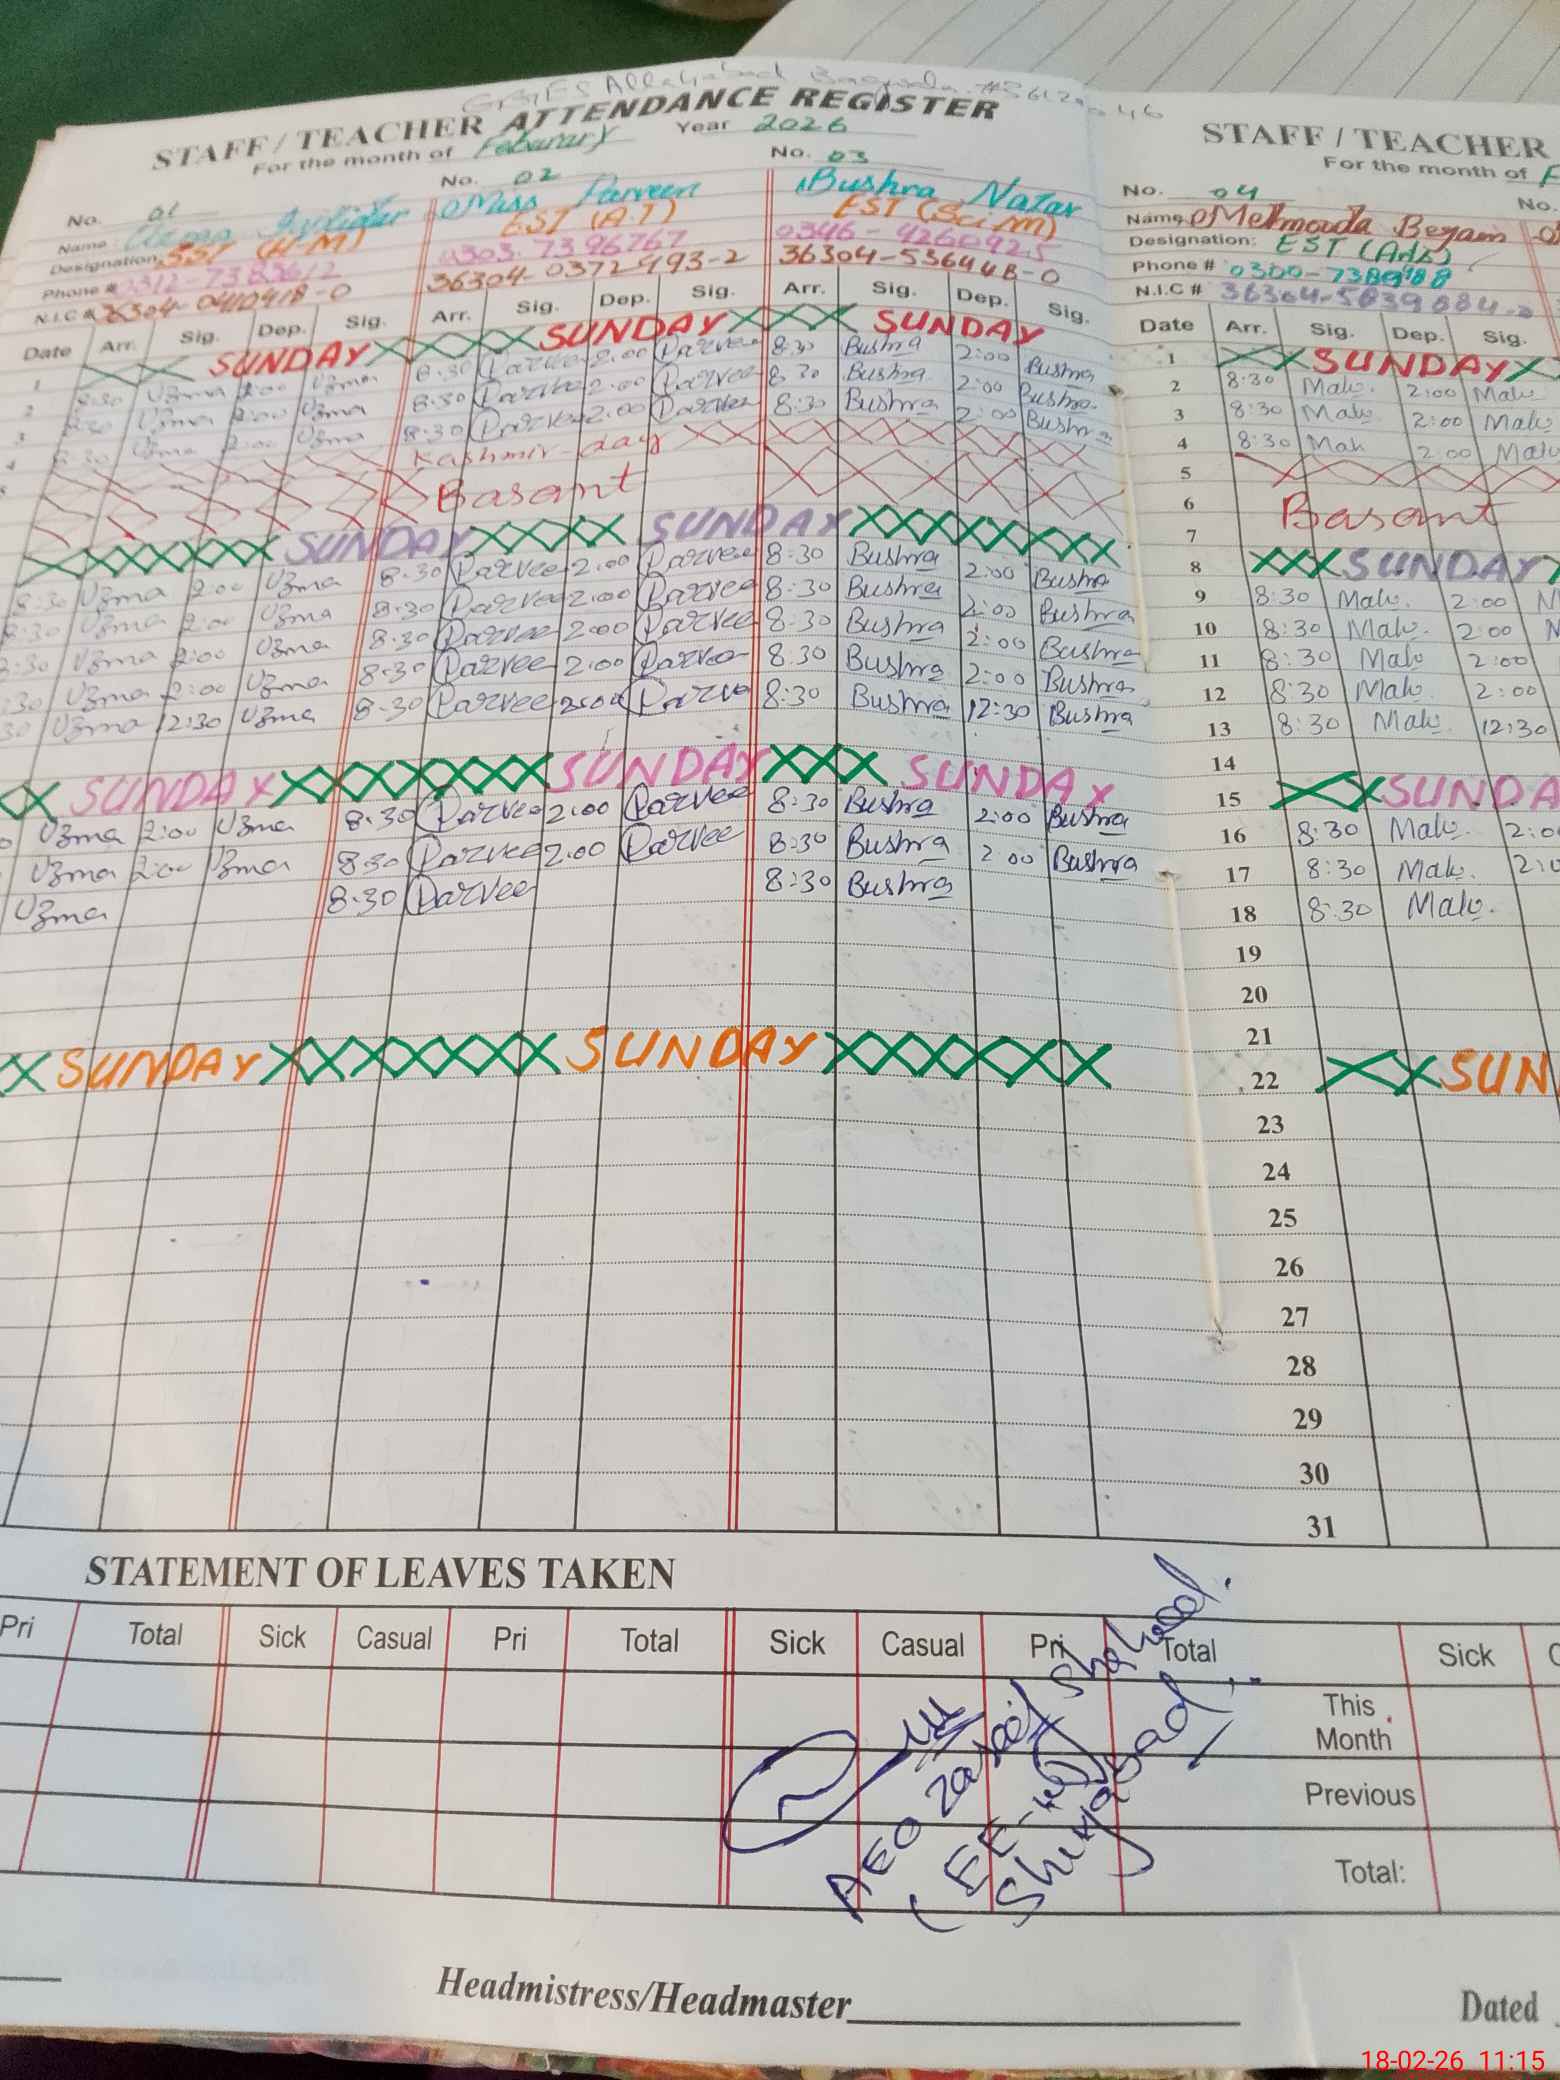 STAFF / TEACHER ATTENDANCE REGISTER
For the month of Feburary Year 2026
No. 01 No. 02 No. 03
Name Miss Parveen Bushra Nazar
Designation: SST (H-M) EST (A.T) EST (Sci M)
Phone # 0303-7396767 0346-4260925
N.I.C # 36304-0372493-2
Date Arr. Sig. Dep. Sig. Arr. Sig. Dep. Sig. Arr. Sig. Dep. Sig.
1 SUNDAY SUNDAY SUNDAY
2 8:30 Uzma 2:00 Uzma 8:30 Parvee 2:00 Parvee 8:30 Bushra 2:00 Bushra
3 8:30 Uzma 2:00 Uzma 8:30 Parvee 2:00 Parvee 8:30 Bushra 2:00 Bushra
4 8:30 Uzma 2:00 Uzma 8:30 Parvee 2:00 Parvee 8:30 Bushra 2:00 Bushra
Kashmir-day
Basant
SUNDAY SUNDAY
8:30 Uzma 2:00 Uzma 8:30 Parvee 2:00 Parvee 8:30 Bushra 2:00 Bushra
8:30 Uzma 2:00 Uzma 8:30 Parvee 2:00 Parvee 8:30 Bushra 2:00 Bushra
8:30 Uzma 2:00 Uzma 8:30 Parvee 2:00 Parvee 8:30 Bushra 2:00 Bushra
:30 Uzma 2:00 Uzma 8:30 Parvee 2:00 Parvee 8:30 Bushra 2:00 Bushra
30 Uzma 12:30 Uzma 8:30 Parvee Parve 8:30 Bushra 12:30 Bushra
SUNDAY SUNDAY SUNDAY
Uzma 2:00 Uzma 8:30 Parvee 2:00 Parvee 8:30 Bushra 2:00 Bushra
Uzma 2:00 Uzma 8:30 Parvee 2:00 Parvee 8:30 Bushra 2:00 Bushra
Uzma 8:30 Parvee 8:30 Bushra
SUNDAY SUNDAY
STATEMENT OF LEAVES TAKEN
Pri Total Sick Casual Pri Total Sick Casual Pri Total
AEO
Shujabad
Headmistress/Headmaster
STAFF / TEACHER
For the month of F
No. 04 No.
Name Mehmooda Begam
Designation: EST (Arts)
Phone #
N.I.C #
Date Arr. Sig. Dep. Sig.
1 SUNDAY
2 8:30 Mah. 2:00 Mah
3 8:30 Mah. 2:00 Mah
4 8:30 Mah 2:00 Mah
5
6 Basant
7
8 SUNDAY
9 8:30 Mah. 2:00
10 8:30 Mah. 2:00
11 8:30 Mah 2:00
12 8:30 Mah. 2:00
13 8:30 Mah. 12:30
14
15 SUNDA
16 8:30 Mah. 2:00
17 8:30 Mah. 2:0
18 8:30 Mah.
19
20
21
22 SUN
23
24
25
26
27
28
29
30
31
Sick C
This Month
Previous
Total:
Dated
18-02-26 11:15